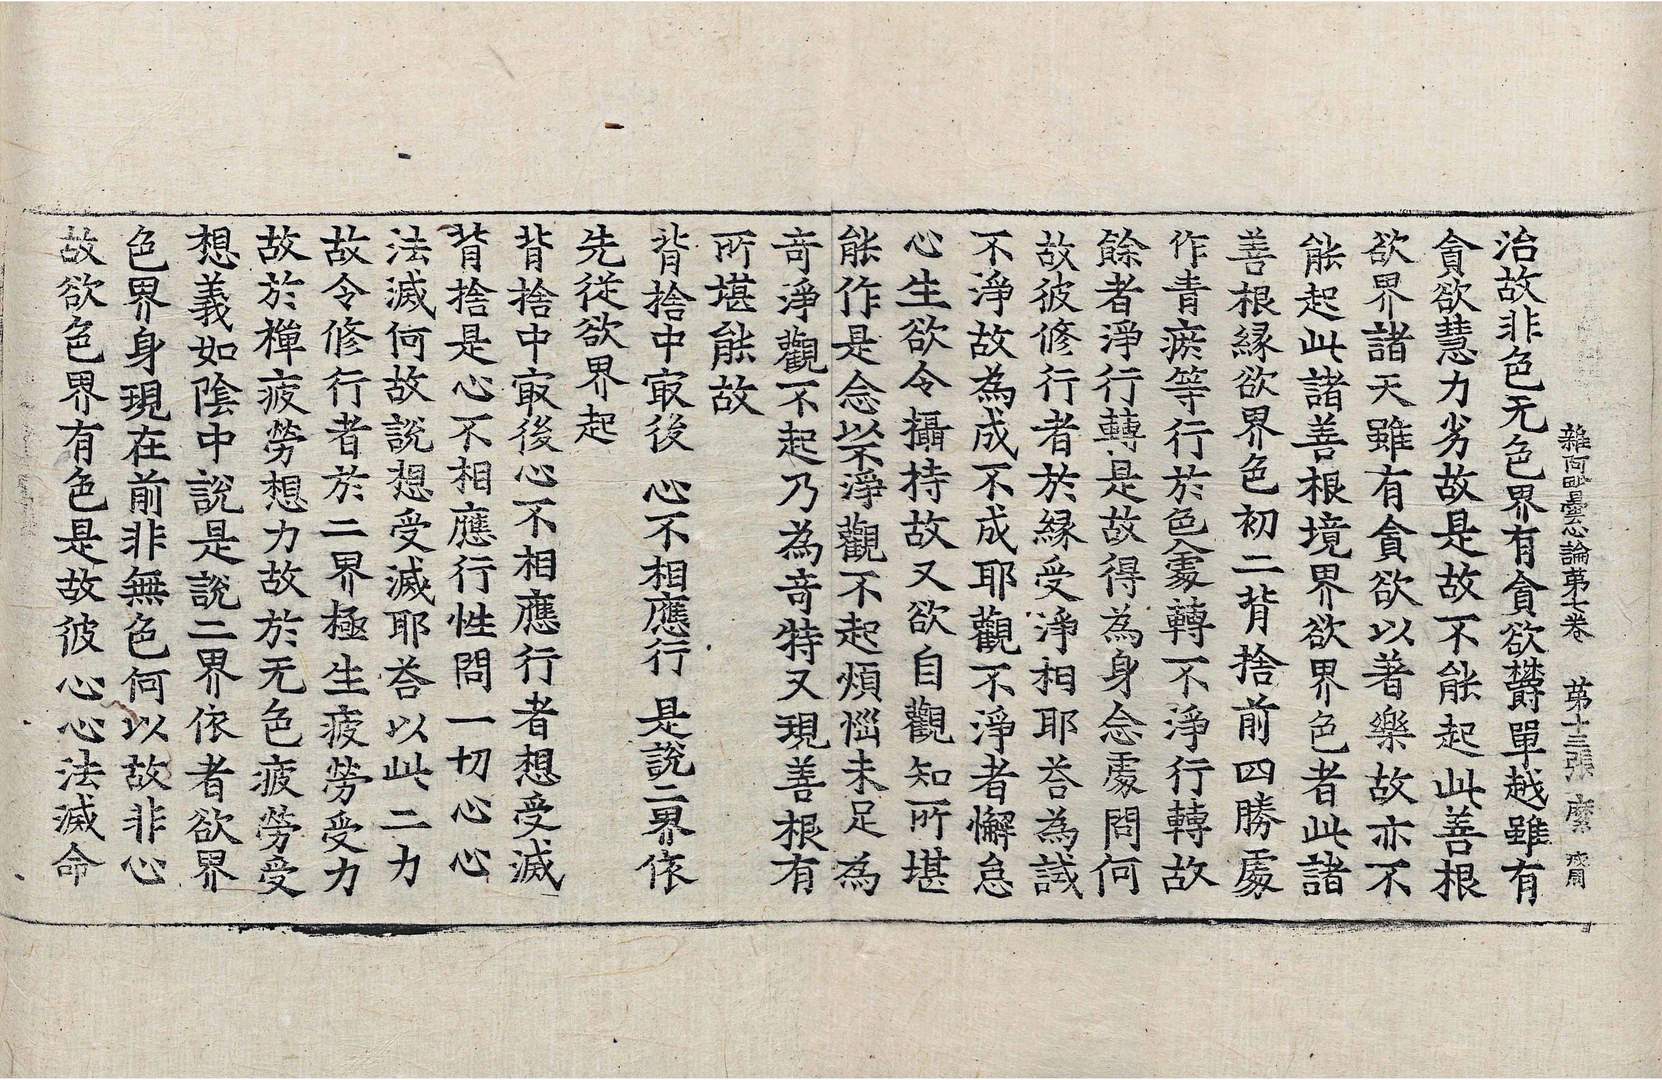 雜阿毗曇心論苐七卷 苐十三張 縻
治故非色无色界有貪欲欝單越雖有
貪欲慧力劣故是故不能起此善根
欲界諸天雖有貪欲以著樂故亦不
能起此諸善根境界欲界色者此諸
善根縁欲界色初二背捨前四勝處
作青瘀等行於色處轉不淨行轉故
餘者淨行轉是故得為身念處問何
故彼修行者於縁受淨相耶荅為試
不淨故為成不成耶觀不淨者懈怠
心生欲令攝持故又欲自觀知所堪
能作是念以不淨觀不起煩惱未足為
奇淨觀不起乃為奇特又現善根有
所堪能故
背捨中㝡後 心不相應行 是說二界依
先從欲界起
背捨中㝡後心不相應行者想受滅
背捨是心不相應行性問一切心心
法滅何故說想受滅耶荅以此二力
故令修行者於二界極生疲勞受力
故於禪疲勞想力故於无色疲勞受
想義如陰中說是說二界依者欲界
色界身現在前非無色何以故非心
故欲色界有色是故彼心心法滅命